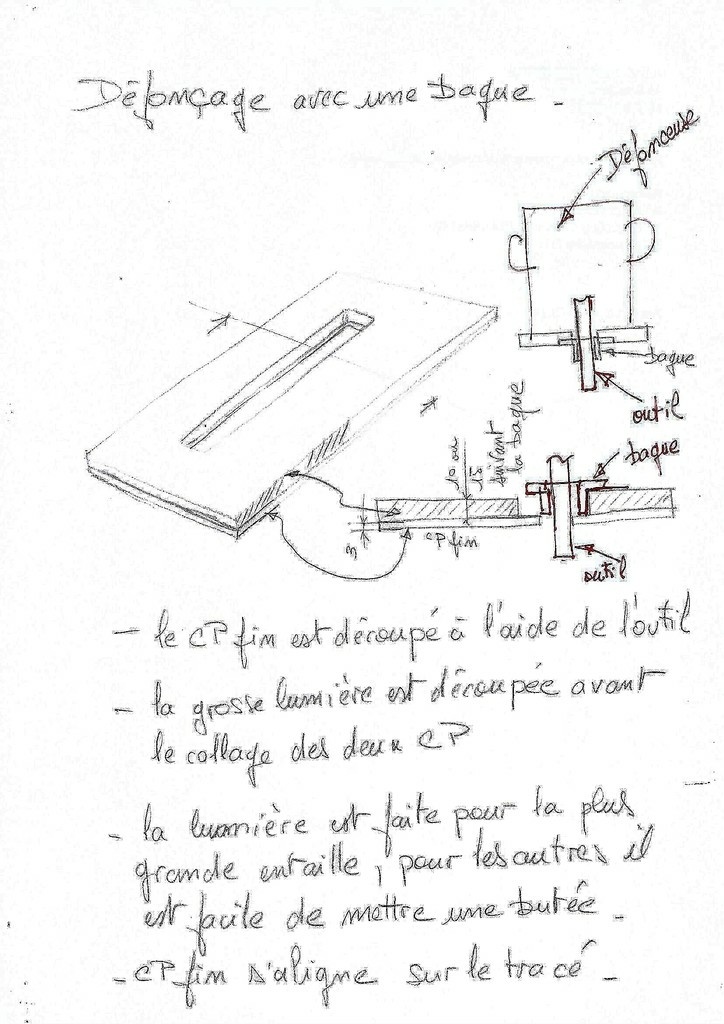 Défonçage avec une bague -
Défonceuse
bague
outil
10 ou
15
suivant
la bague
bague
3
CP fin
outil
- le CP fin est découpé à l'aide de l'outil
- la grosse lumière est découpée avant
le collage des deux CP
- la lumière est faite pour la plus
grande entaille, pour les autres il
est facile de mettre une butée -
- CP fin s'aligne sur le tracé -